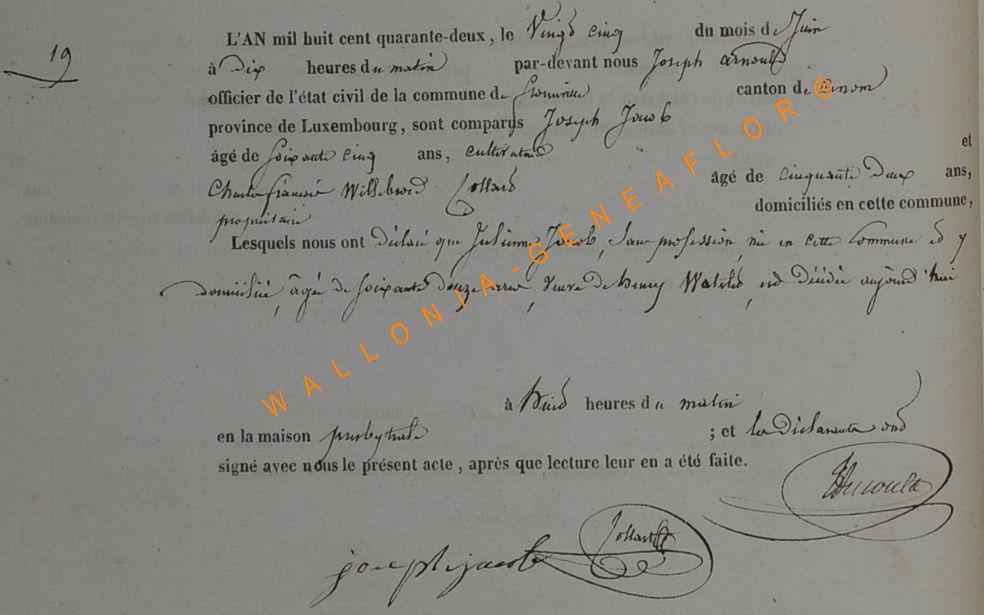 19
L'AN mil huit cent quarante-deux, le Vingt cinq du mois de Juin
à Dix heures du matin par-devant nous Joseph arnould
officier de l'état civil de la commune de canton de
province de Luxembourg, sont comparus Joseph Jacob
âgé de Soixante Cinq ans, cultivateur et
Charle francois Willebrord Collard âgé de cinquante Deux ans,
propriétaire domiciliés en cette commune,
Lesquels nous ont Déclaré que Julienne Jacob, Sans profession, née en cette Commune et y
domiciliée, âgée de Soixante douze ans, Veuve de henry est Décédée aujourd'hui
à huit heures du matin
en la maison presbytérale ; et les Déclarants ont
signé avec nous le présent acte, après que lecture leur en a été faite.
Arnould
Collard
joseph jacob
WALLONIA-GENEAFLOR©